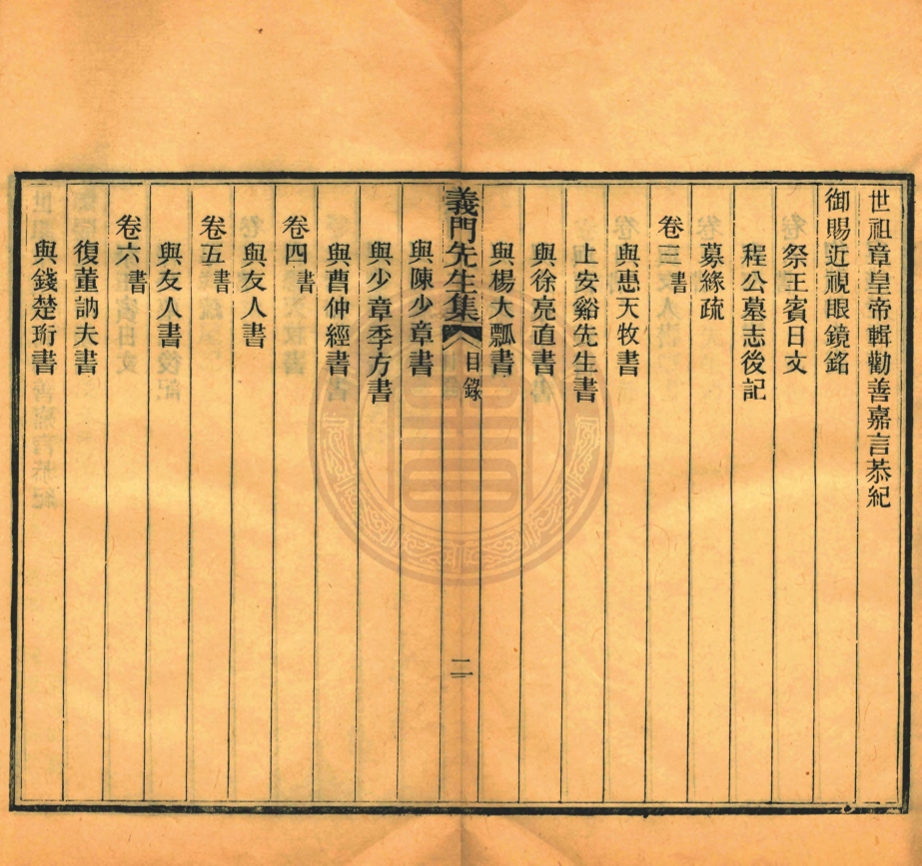 世祖章皇帝輯勸善嘉言恭紀
御賜近視眼鏡銘
祭王賓日文
程公墓志後記
募緣疏
卷三 書
與惠天牧書
上安谿先生書
與徐亮直書
與楊大瓢書
義門先生集 目錄 二
與陳少章書
與少章季方書
與曹仲經書
卷四 書
與友人書
卷五 書
與友人書
卷六 書
復董訥夫書
與錢楚珩書